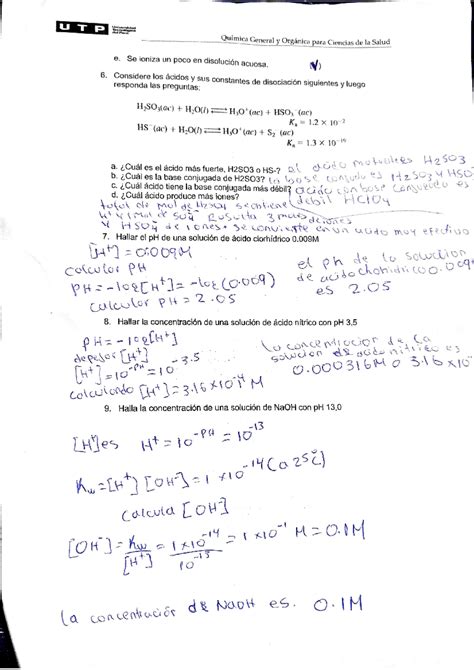 UTP
Química General y Orgánica para Ciencias de la Salud
e. Se ioniza un poco en disolución acuosa. (V)
6. Considere los ácidos y sus constantes de disociación siguientes y luego
responda las preguntas:
H₂SO₃(ac) + H₂O(l) ⇌ H₃O⁺(ac) + HSO₃⁻(ac)
Kₐ = 1.2 × 10⁻²
HS⁻(ac) + H₂O(l) ⇌ H₃O⁺(ac) + S₂ (ac)
Kₐ = 1.3 × 10⁻¹⁹
a. ¿Cuál es el ácido más fuerte, H2SO3 o HS-? el acido H2SO3
b. ¿Cuál es la base conjugada de H2SO3? la base conjugada es HSO
c. ¿Cuál ácido tiene la base conjugada más débil? acido con base conjugada es
d. ¿Cuál ácido produce más iones? debil HClO4
total de mol de H2SO4 contiene
H⁺ y 1 mol de SO4 Resulta 3 mores de iones
y HSO4 de iones. se convierte en un acido muy efectivo
7. Hallar el pH de una solución de ácido clorhídrico 0.009M
[H⁺] = 0.009M
calcular PH
PH = -log[H⁺] = -log(0.009)
calcular PH = 2.05
el ph de la solucion
de acido 0.009
es 2.05
8. Hallar la concentración de una solución de ácido nítrico con pH 3,5
PH = -log[H⁺]
[H⁺]
[H⁺] = 10⁻ᴾᴴ = 10⁻³·⁵
calculando [H⁺] = 3.16 x 10⁻⁴ M
la concentracion de la
solucion de acido nitrico es
0.000316M o 3.16 x 10
9. Halla la concentración de una solución de NaOH con pH 13,0
[H⁺] es H⁺ = 10⁻ᴾᴴ = 10⁻¹³
Kw = [H⁺] [OH⁻] = 1 x 10⁻¹⁴ (a 25°C)
Calcula [OH]
[OH⁻] = Kw/[H⁺] = 1 x 10⁻¹⁴/10⁻¹³ = 1 x 10⁻¹ M = 0.1M
la concentración de NaOH es. 0.1M